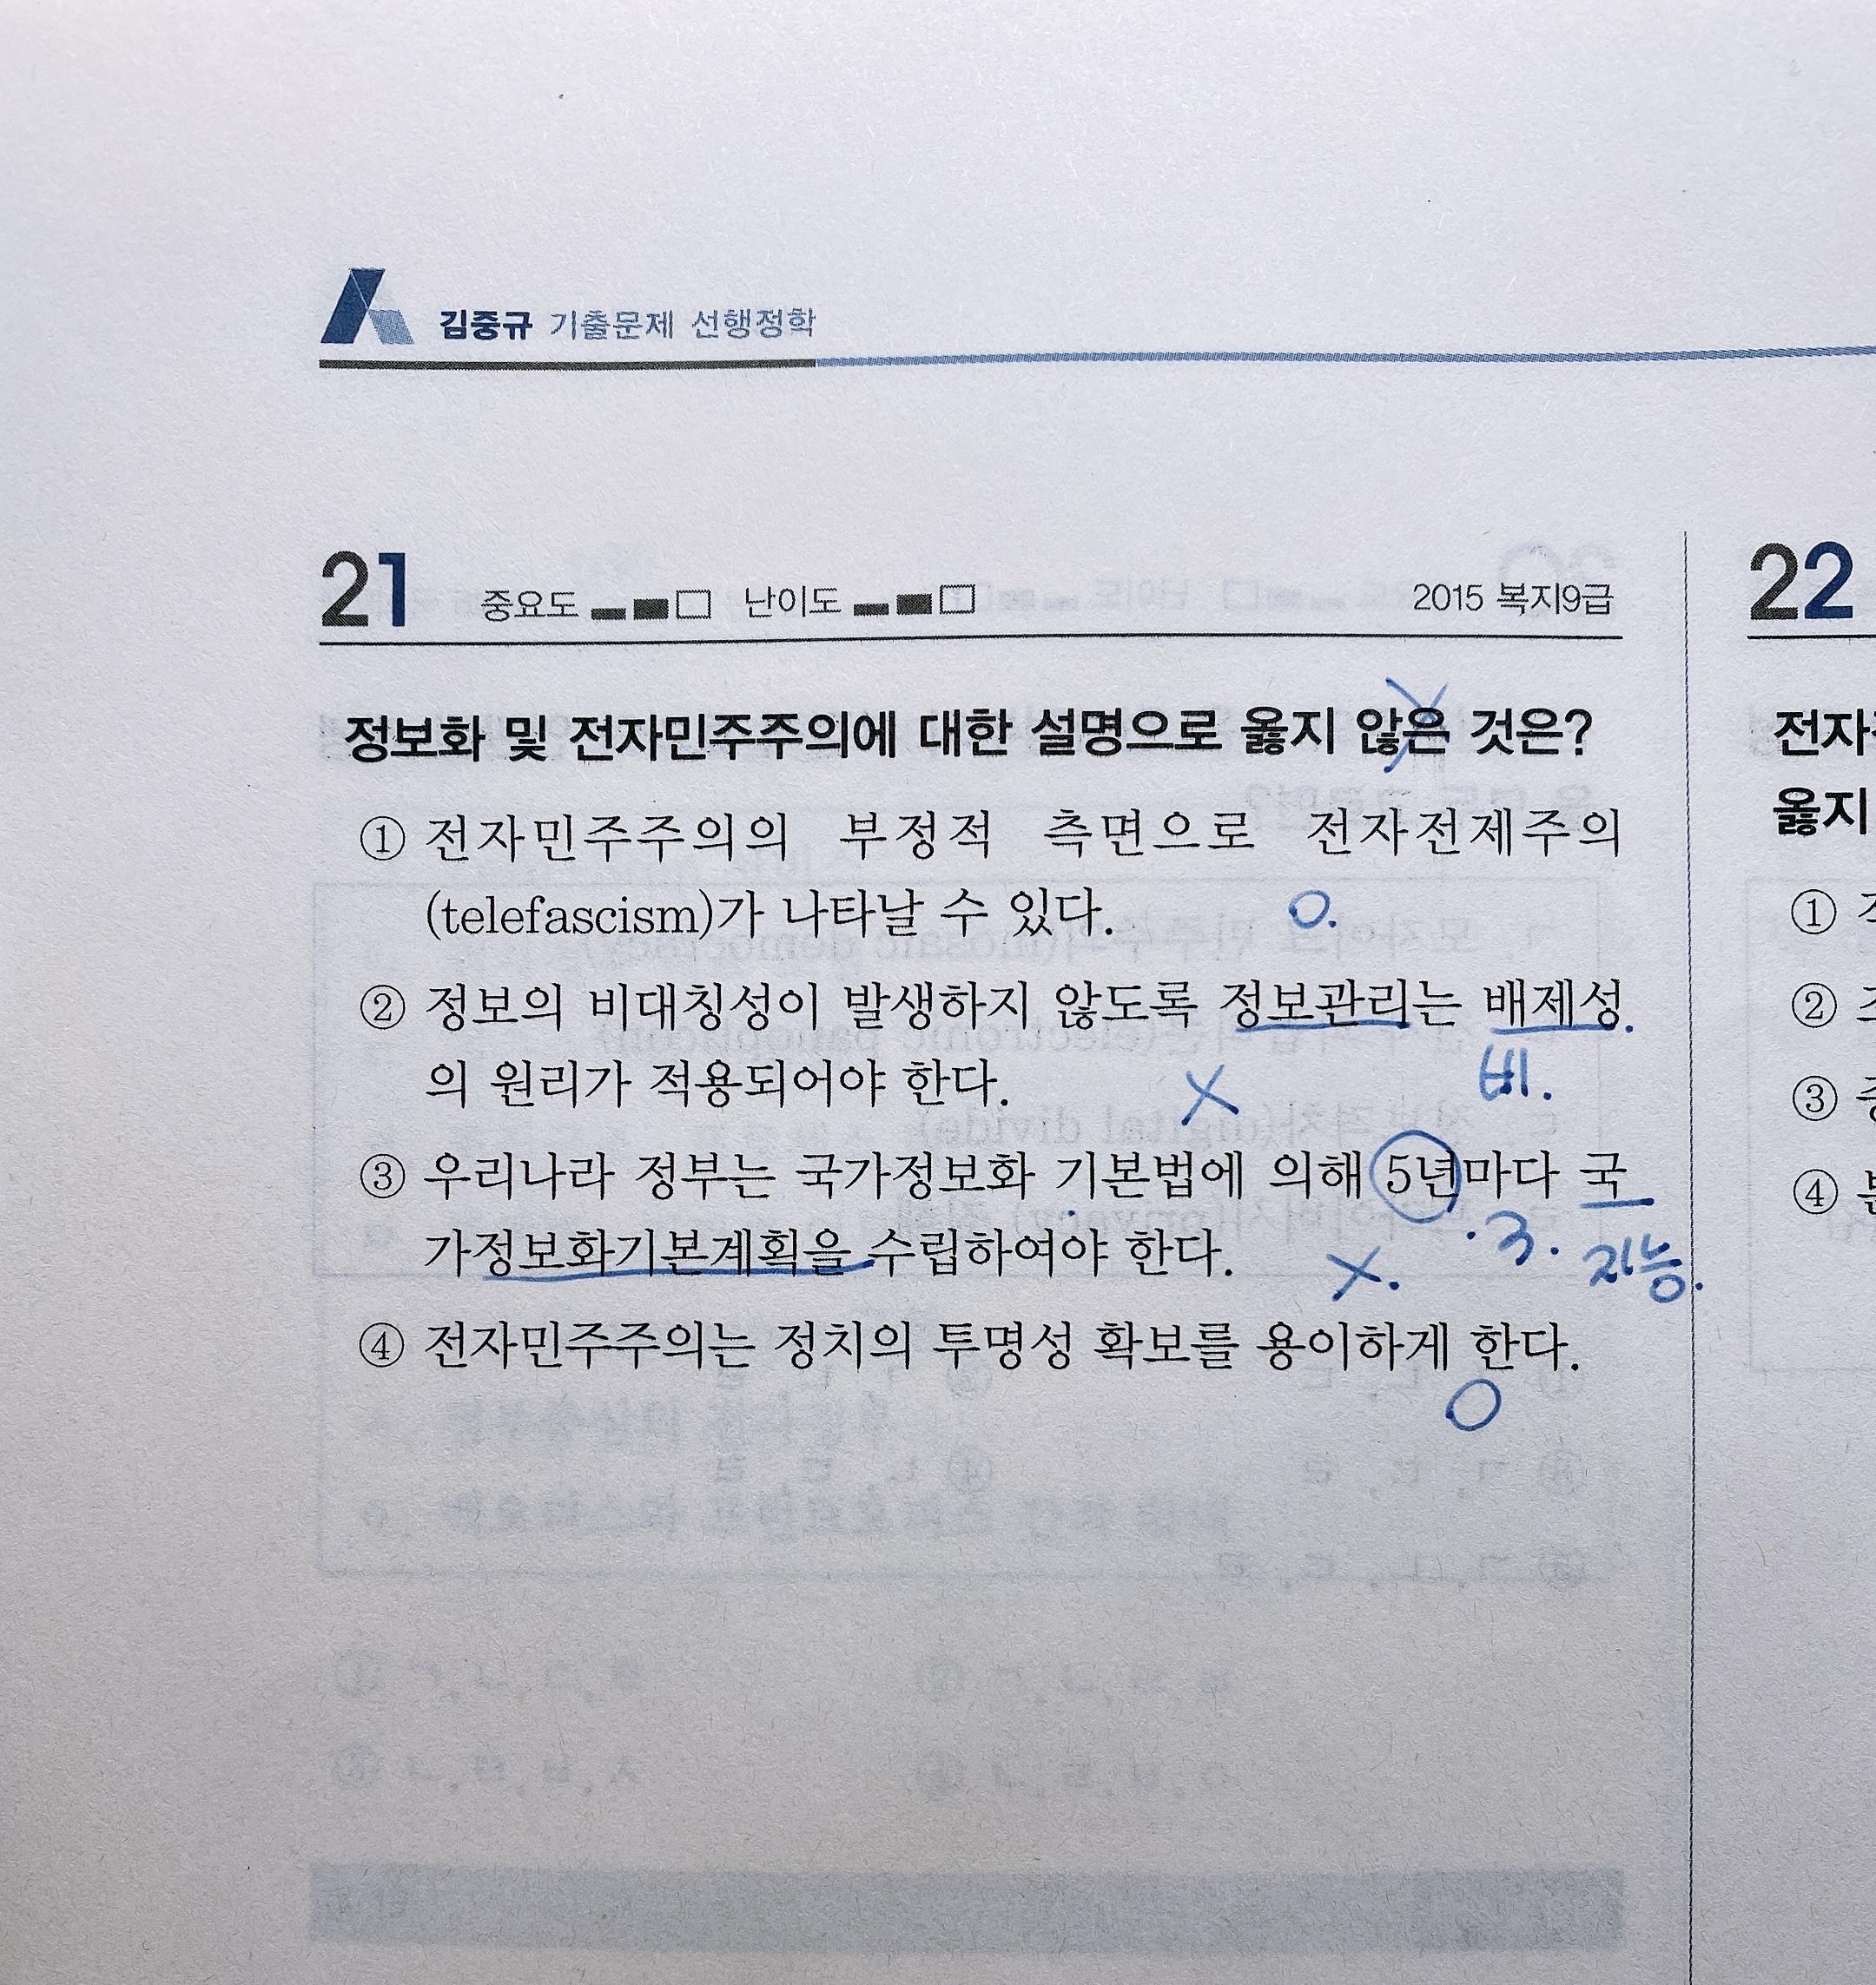 김중규 기출문제 선행정학
21 중요도 난이도 2015 복지9급
정보화 및 전자민주주의에 대한 설명으로 옳지 않은 것은?
① 전자민주주의의 부정적 측면으로 전자전제주의
(telefascism)가 나타날 수 있다. O.
② 정보의 비대칭성이 발생하지 않도록 정보관리는 배제성
의 원리가 적용되어야 한다. X 비.
③ 우리나라 정부는 국가정보화 기본법에 의해 5년마다 국
가정보화기본계획을 수립하여야 한다. X. 3. 지능.
④ 전자민주주의는 정치의 투명성 확보를 용이하게 한다.
O
22
전자
옳지
①
②
③
④